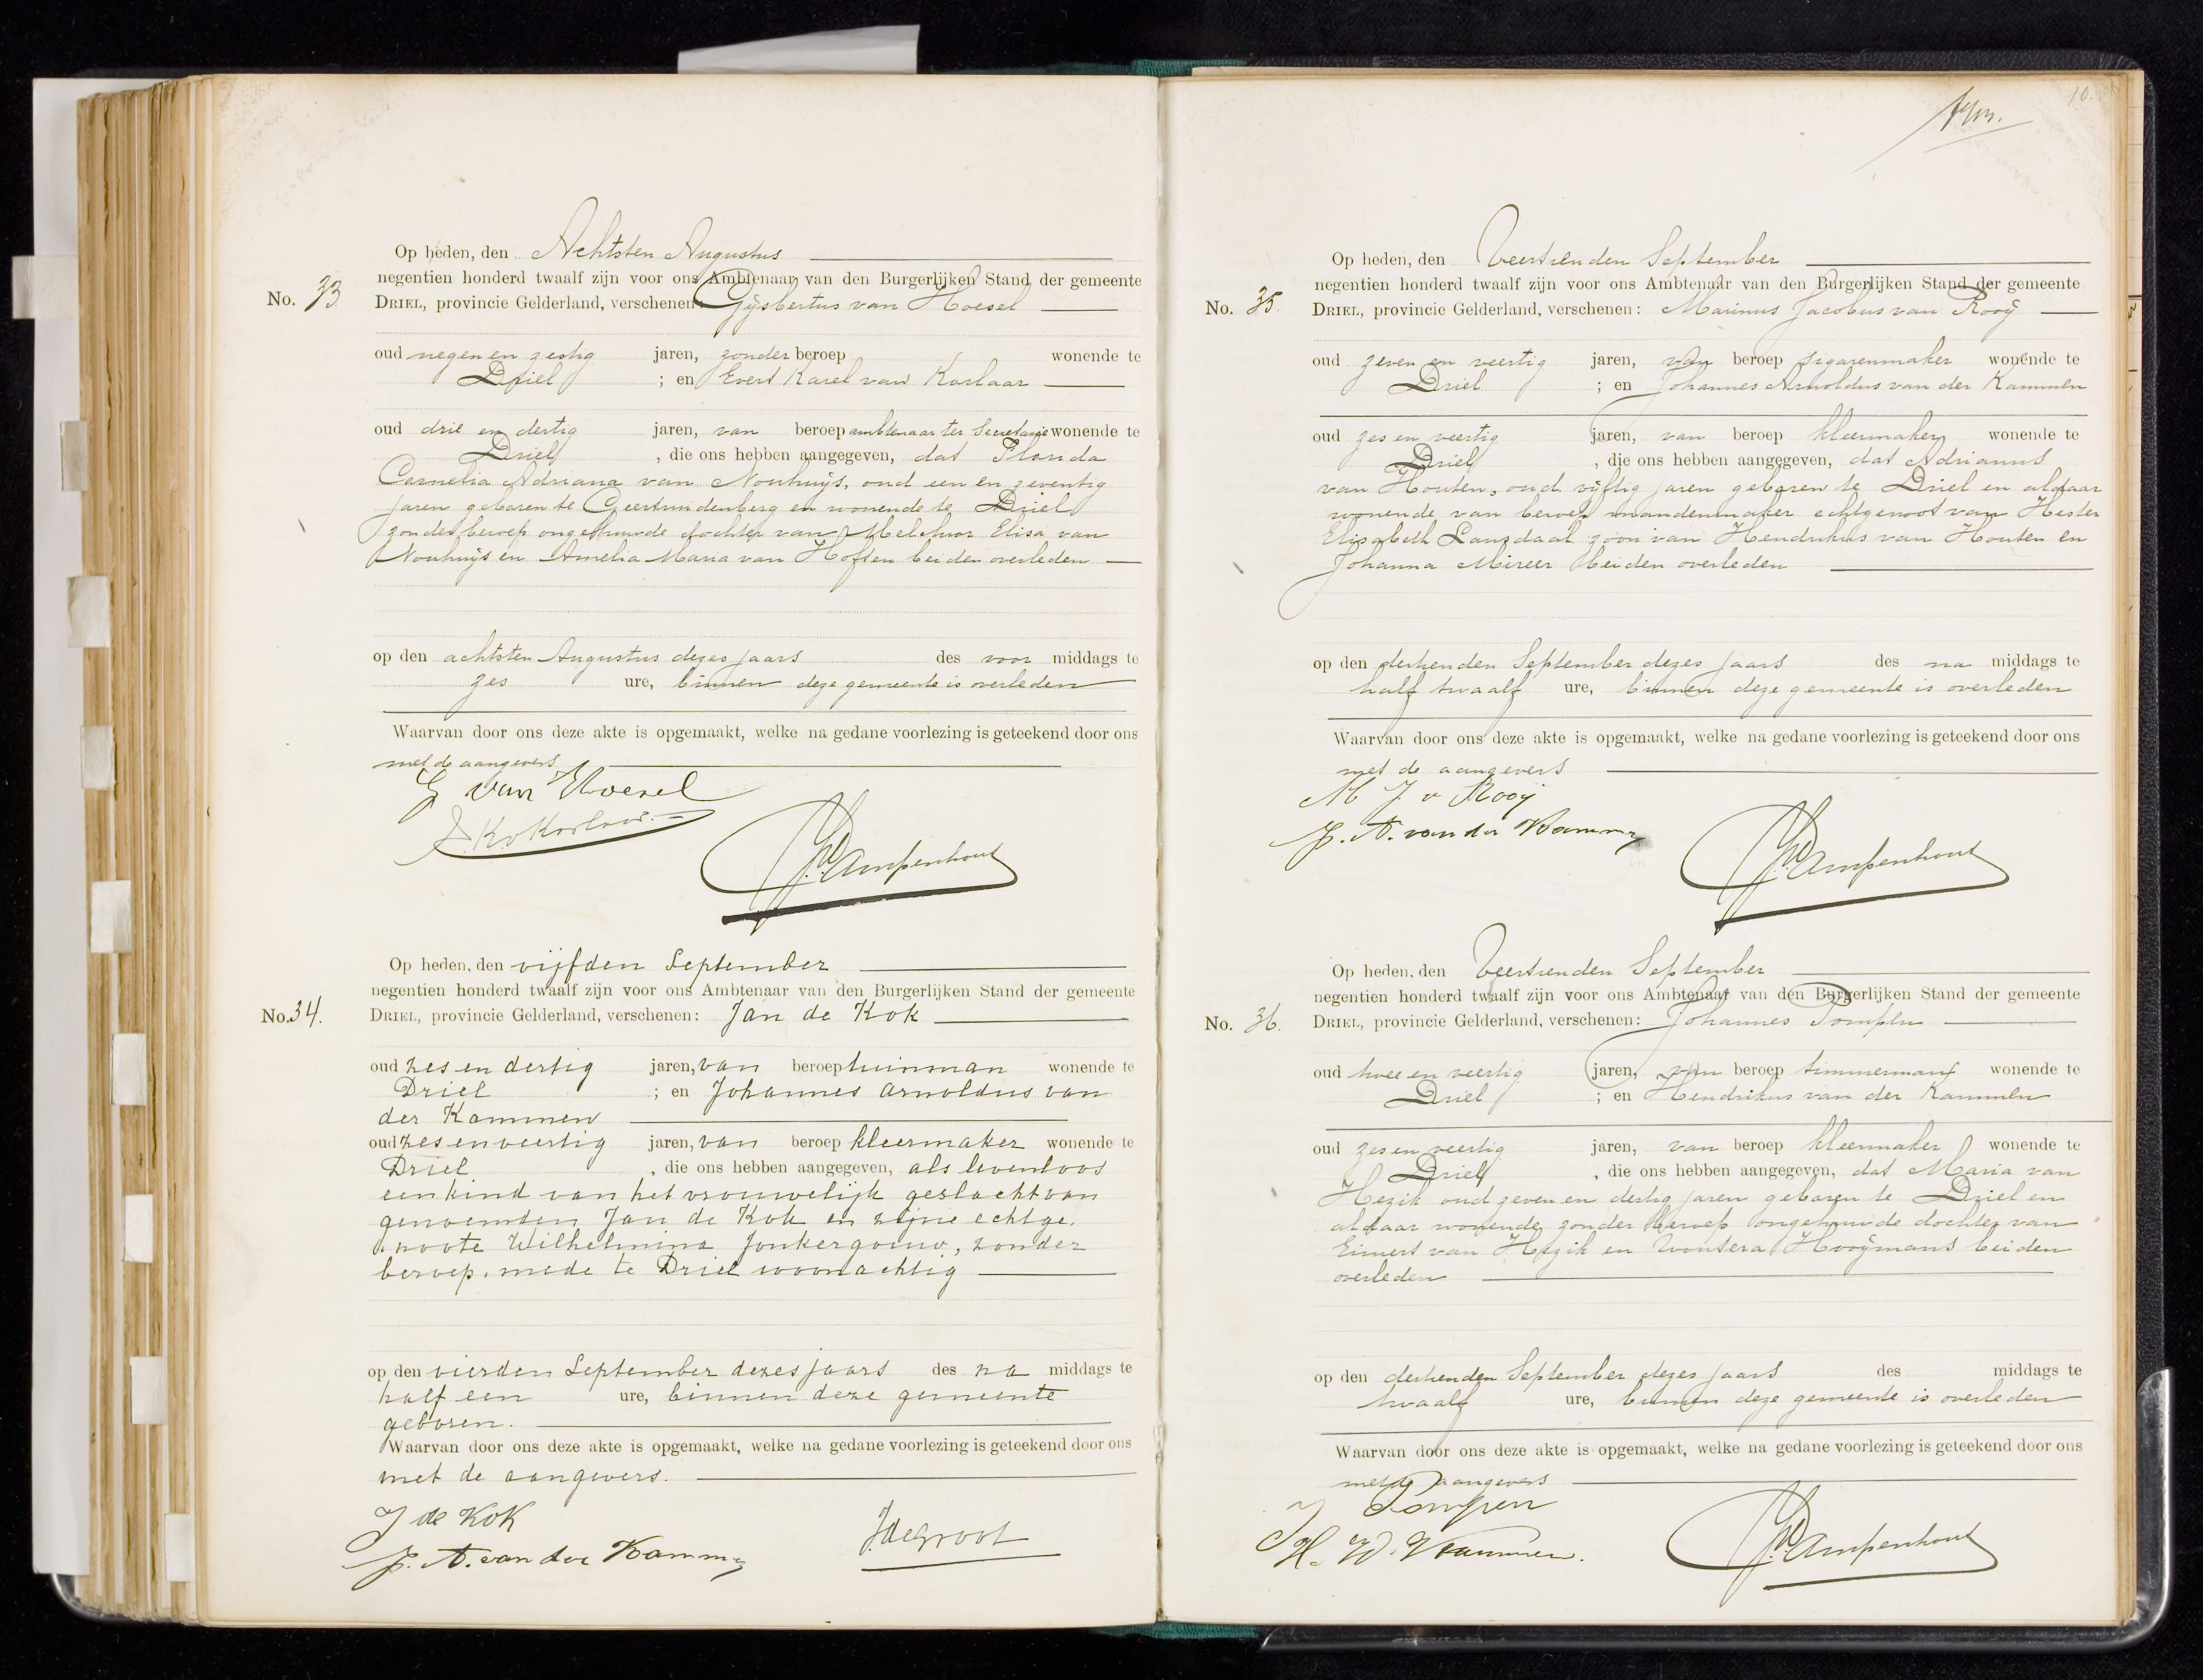 Op heden, den Achtsten Augustus
negentien honderd twaalf zijn voor ons Ambtenaar van den Burgerlijken Stand der gemeente
No. 33 DRIEL, provincie Gelderland, verschenen: Gijsbertus van Hoesel
oud negen en zestig jaren, zonder beroep wonende te
Driel ; en Evert Karel van Korlaar
oud drie en dertig jaren, van beroep ambtenaar ter Secretarie wonende te
Driel , die ons hebben aangegeven, dat Florida
Cornelia Adriana van Nouhuijs, oud een en zeventig
jaren geboren te Geertruidenberg en wonende te Driel
zonder beroep ongehuwde dochter van Melchior Elisa van
Nouhuijs en Amelia Maria van Hoften beiden overleden
op den achtsten Augustus dezes jaars des voor middags te
zes ure, binnen deze gemeente is overleden
Waarvan door ons deze akte is opgemaakt, welke na gedane voorlezing is geteekend door ons
met de aangevers
G van Hoesel
E.K.v.Korlaar
Op heden, den vijfden September
negentien honderd twaalf zijn voor ons Ambtenaar van den Burgerlijken Stand der gemeente
No. 34. DRIEL, provincie Gelderland, verschenen: Jan de Kok
oud zes en dertig jaren, van beroep tuinman wonende te
Driel ; en Johannes Arnoldus van
der Kammen
oud zes en veertig jaren, van beroep kleermaker wonende te
Driel , die ons hebben aangegeven, als levenloos
een kind van het vrouwelijk geslacht van
genoemden Jan de Kok en zijne echtge.
noote Wilhelmina Jonkergouw, zonder
beroep, mede te Driel woonachtig
op den vierden September dezes jaars des na middags te
half een ure, binnen deze gemeente
geboren.
Waarvan door ons deze akte is opgemaakt, welke na gedane voorlezing is geteekend door ons
met de aangevers.
J de Kok
J. A. van der Kammen
J. de Groot
10.
Op heden, den Veertienden September
negentien honderd twaalf zijn voor ons Ambtenaar van den Burgerlijken Stand der gemeente
No. 35. DRIEL, provincie Gelderland, verschenen: Marinus Jacobus van Rooij
oud zeven en veertig jaren, van beroep sigarenmaker wonende te
Driel ; en Johannes Arnoldus van der Kammen
oud zes en veertig jaren, van beroep kleermaker wonende te
Driel , die ons hebben aangegeven, dat Adrianus
van Houten, oud vijftig jaren geboren te Driel en aldaar
wonende van beroep mandenmaker echtgenoot van Hester
Elisabeth Langdaal zoon van Hendrikus van Houten en
Johanna Mireer beiden overleden
op den dertienden September dezes jaars des na middags te
half twaalf ure, binnen deze gemeente is overleden
Waarvan door ons deze akte is opgemaakt, welke na gedane voorlezing is geteekend door ons
met de aangevers
M J v Rooij
J. A. van der Kammen
Op heden, den Veertienden September
negentien honderd twaalf zijn voor ons Ambtenaar van den Burgerlijken Stand der gemeente
No. 36. DRIEL, provincie Gelderland, verschenen: Johannes Pompen
oud twee en veertig jaren, van beroep timmerman wonende te
Driel ; en Hendrikus van der Kammen
oud zes en veertig jaren, van beroep kleermaker wonende te
Driel , die ons hebben aangegeven, dat Maria van
Hezik oud zeven en dertig jaren geboren te Driel en
aldaar wonende zonder beroep ongehuwde dochter van
Eimert van Hezik en Woutera Hooijmans beiden
overleden
op den dertienden September dezes jaars des middags te
twaalf ure, binnen deze gemeente is overleden
Waarvan door ons deze akte is opgemaakt, welke na gedane voorlezing is geteekend door ons
met de aangevers
J Pompen